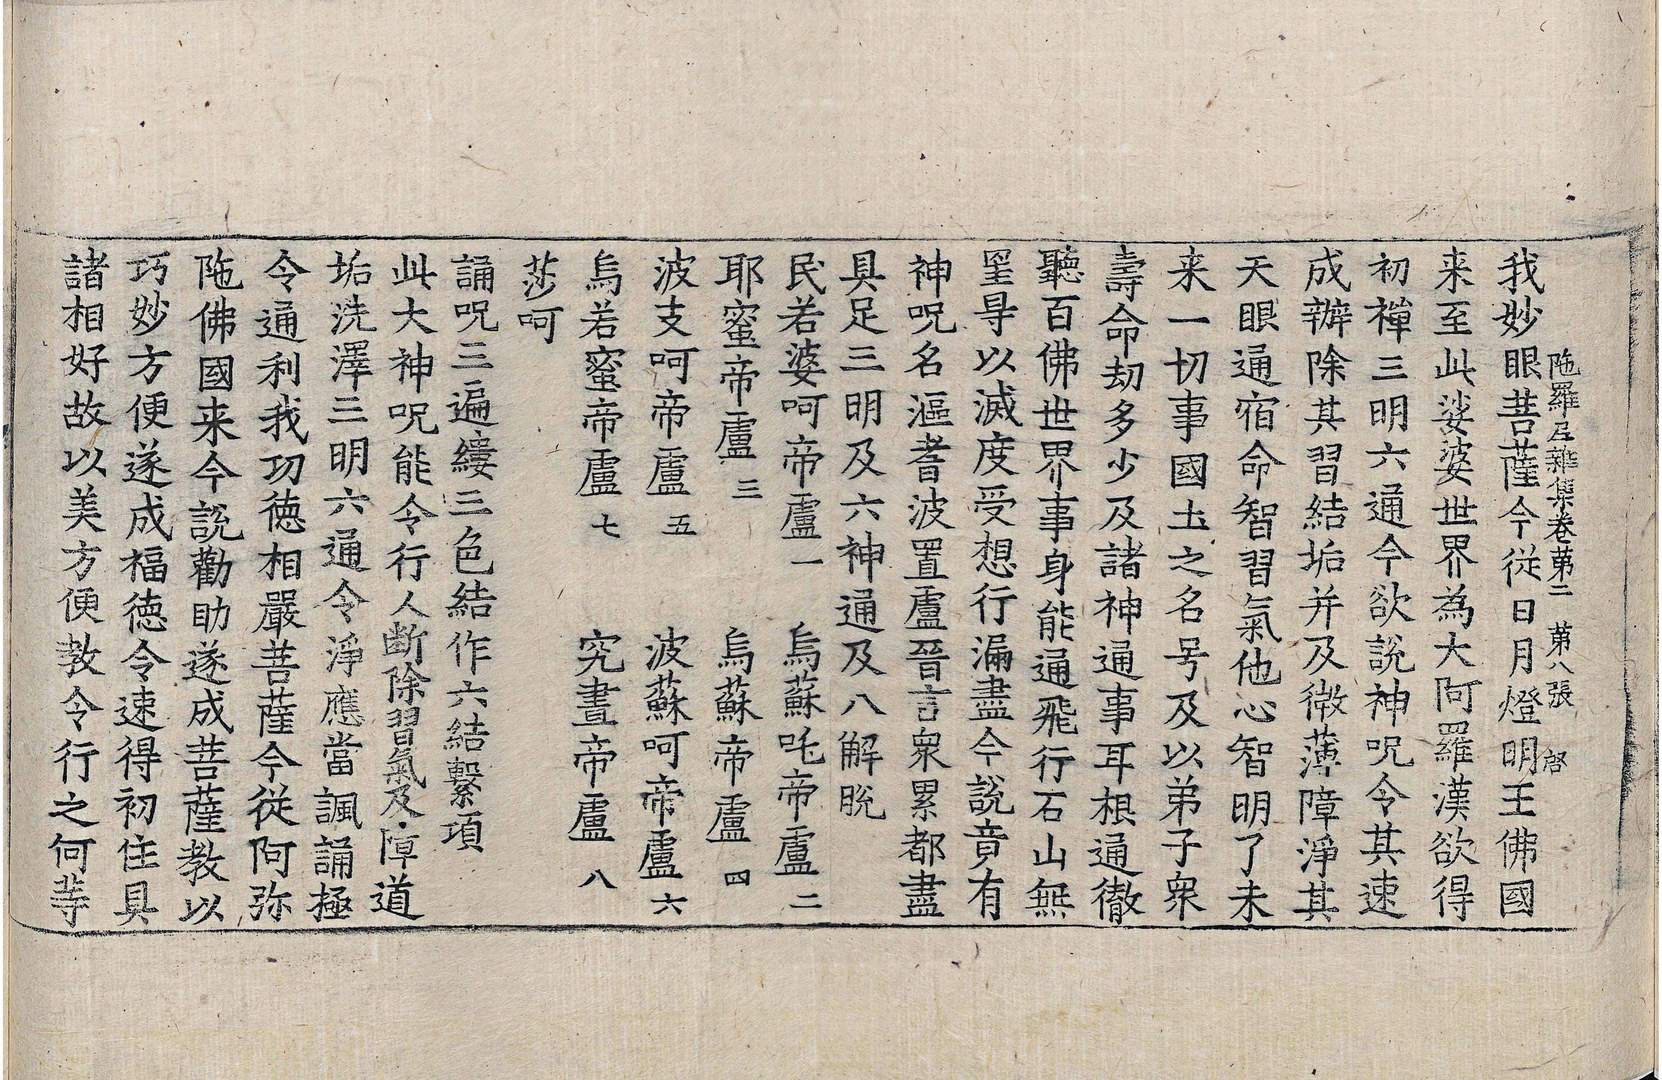 陁羅尼雜集卷苐二　苐八張　啓
我妙眼菩薩今從日月燈明王佛國
来至此娑婆世界為大阿羅漢欲得
初禪三明六通今欲說神呪令其速
成辦除其習結垢并及微薄障淨其
天眼通宿命智習氣他心智明了未
来一切事國土之名号及以弟子衆
壽命劫多少及諸神通事耳根通徹
聽百佛世界事身能通飛行石山無
罣㝵以滅度受想行漏盡今說章有
神呪名漚耆波置盧晉言衆累都盡
具足三明及六神通及八解脫
民若婆呵帝盧一　烏蘇吒帝盧二
耶蜜帝盧三　烏蘇帝盧四
波支呵帝盧五　波蘇呵帝盧六
烏若蜜帝盧七　究晝帝盧八
莎呵
誦呪三遍縷三色結作六結繫項
此大神呪能令行人斷除習氣及障道
垢洗澤三明六通令淨應當諷誦極
令通利我功徳相嚴菩薩今從阿弥
陁佛國来今說勸助遂成菩薩教以
巧妙方便遂成福徳令速得初住具
諸相好故以美方便教令行之何等